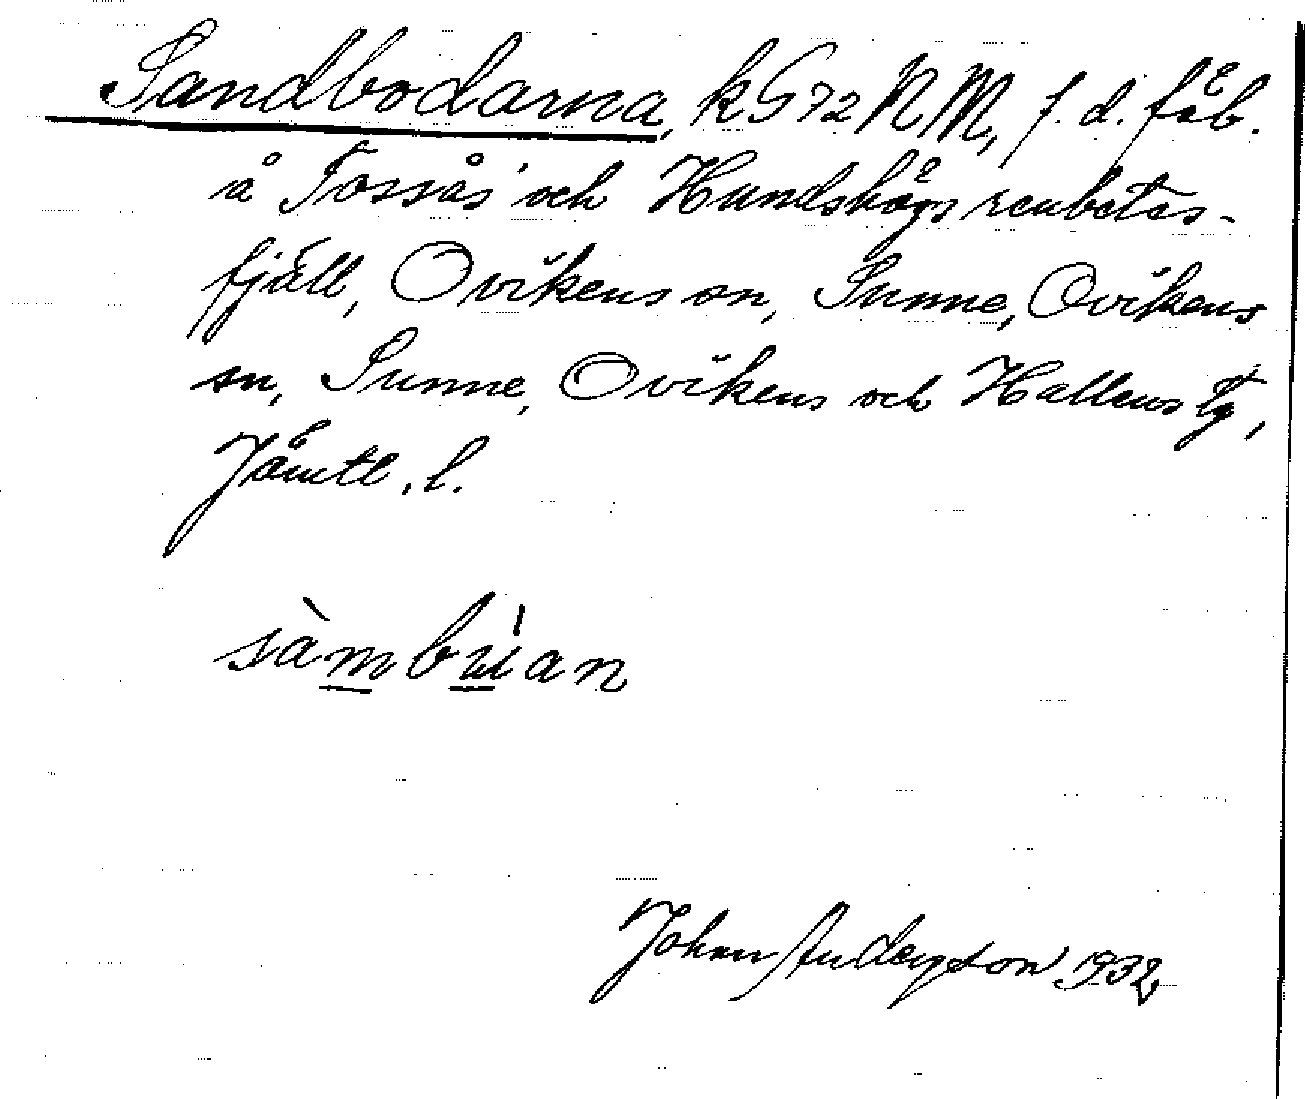 Sandbodarna, k G 72 N M, f. d. fäb.
å Tossås och Hundshögs renbetes-
fjäll, Ovikens sn, Sunne, Ovikens
sn, Sunne, Ovikens och Hallens tg,
Jämtl. l.
sàmbu̇́an
Johan Anderzson 1932